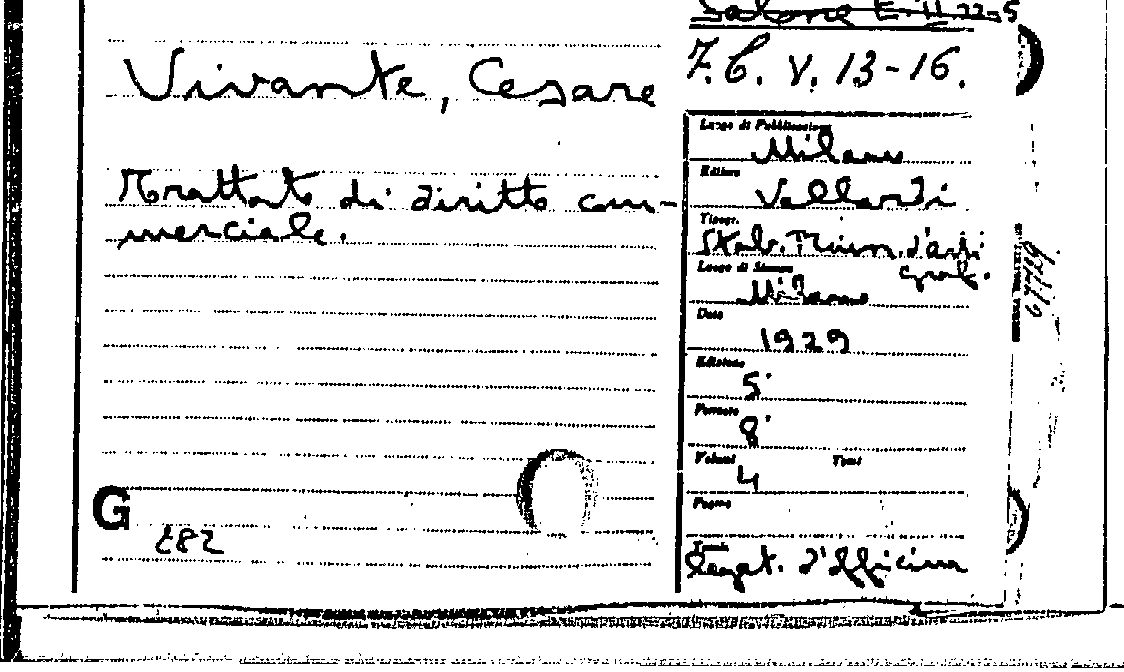 Salone E. II 22-5
7. C. V. 13-16.
Vivante, Cesare
Trattato di diritto com-
merciale.
Luogo di Pubblicazione
Milano
Editore
Vallardi
Tipogr.
Stab. Riun. d'arti
graf.
Luogo di Stampa
Milano
Data
1929
Edizione
5ª
Formato
8°
Volumi Tomi
4
Prezzo
legat. d'officina
G
282